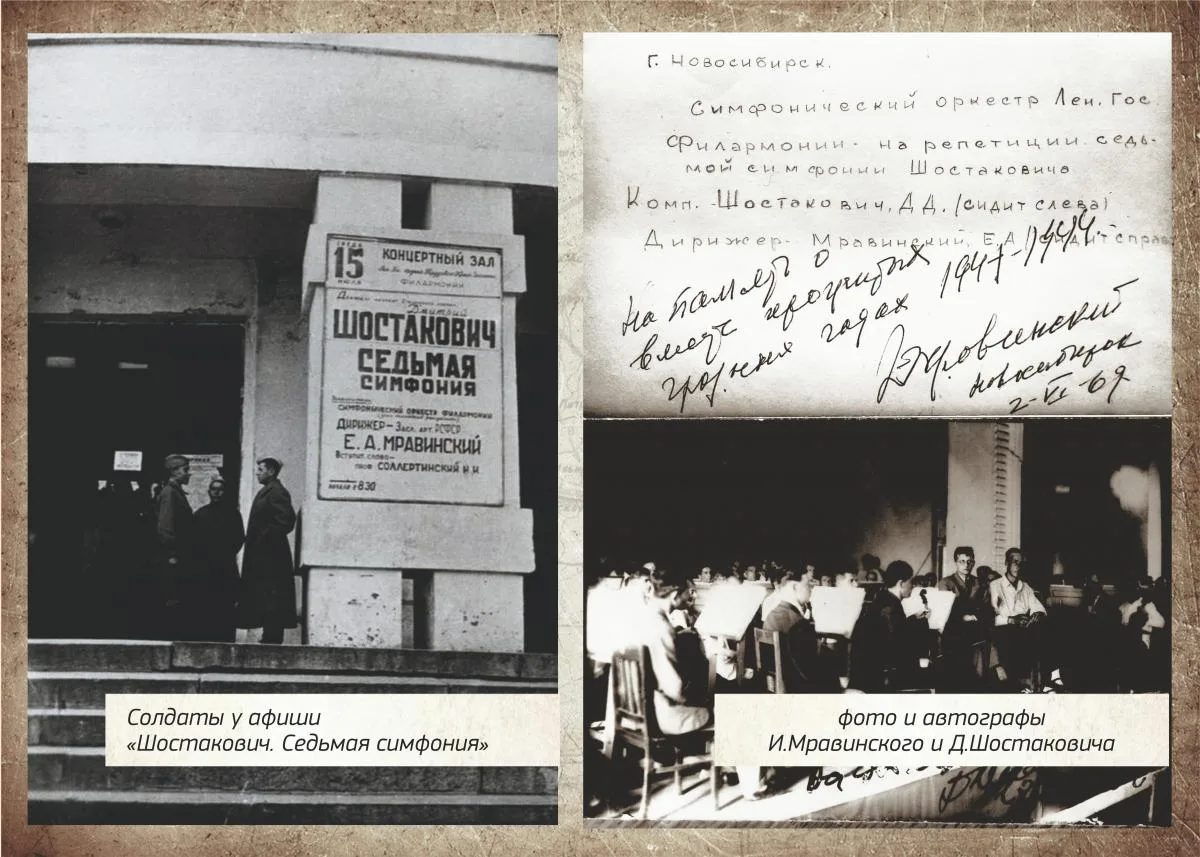 СРЕДА
15
ИЮЛЯ
КОНЦЕРТНЫЙ ЗАЛ
ФИЛАРМОНИИ
Дмитрий
ШОСТАКОВИЧ
СЕДЬМАЯ
СИМФОНИЯ
СИМФОНИЧЕСКИЙ ОРКЕСТР ФИЛАРМОНИИ
ДИРИЖЕР – Засл. арт. РСФСР
Е. А. МРАВИНСКИЙ
Вступит. слово –
проф. СОЛЛЕРТИНСКИЙ И.И.
НАЧАЛО в 8.30
Солдаты у афиши
«Шостакович. Седьмая симфония»
г. Новосибирск.
Симфонический оркестр Лен. Гос.
Филармонии - на репетиции седь-
мой симфонии Шостаковича
Комп. - Шостакович, Д.Д. (сидит слева)
Дирижер - Мравинский, Е.А. (сидит справа
На память о
вместе прожитых
грозных годах 1941-1944.
Новосибирск
2-VI-69
фото и автографы
И.Мравинского и Д.Шостаковича